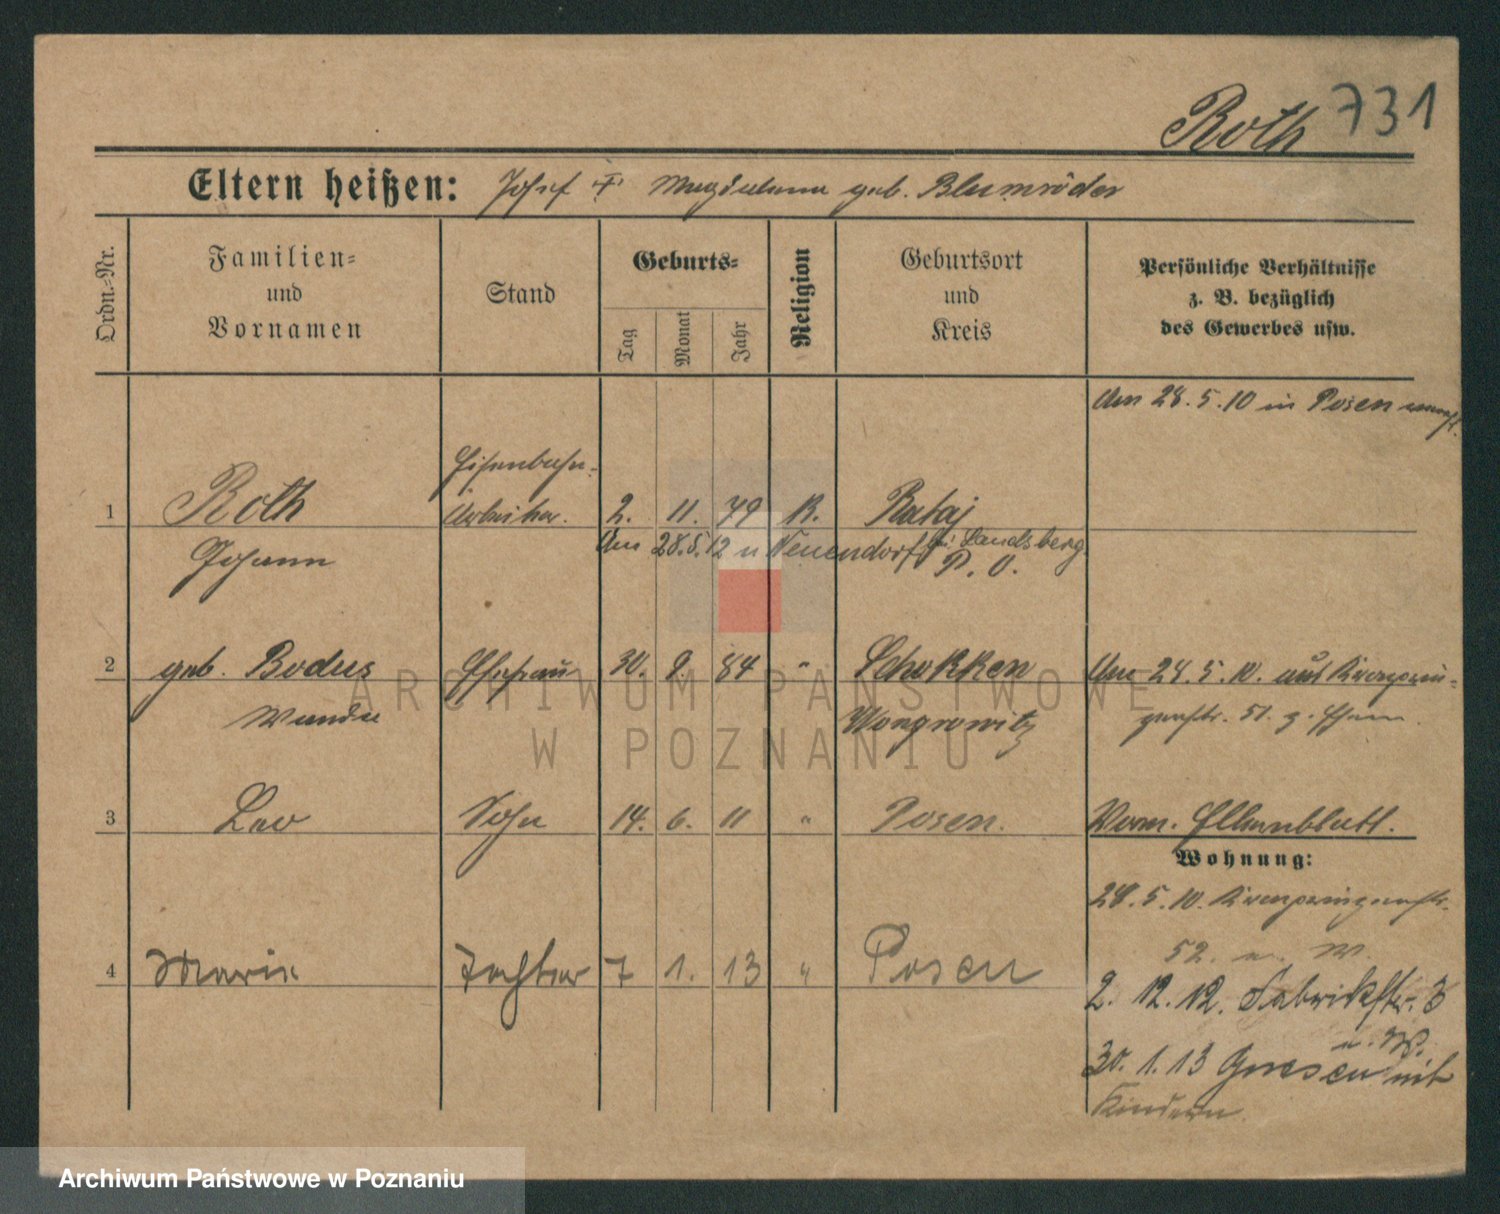 Roth 731
Eltern heißen: Josef † Magdalena geb. Blumröder
Ordn.-Nr.
Familien-
und
Vornamen
Stand
Geburts-
Tag
Monat
Jahr
Religion
Geburtsort
und
Kreis
Persönliche Verhältnisse
z. B. bezüglich
des Gewerbes usw.
Am 28.5.10 in Posen
1 Roth Eisenbahn-
Arbeiter. 2. 11. 79 K. Rataj
Johann
Am 28.5.12 n Neuendorf bei Landsberg
P. O.
2 geb. Bodus Ehefrau 30. 9. 84 " Schokken
Wanda Wongrowitz
Am 28.5.10. aus
51. z. Ehem.
3 Leo Sohn 14. 6. 11 " Posen.
Vorm. Elternblatt.
Wohnung:
28.5.10.
52. u. W.
4 Marie Tochter 7 1. 13 " Posen
2. 12. 12. Fabrikstr. 3
u. W.
30. 1. 13 Gnesen mit
Kindern.
ARCHIWUM PAŃSTWOWE
W POZNANIU
Archiwum Państwowe w Poznaniu